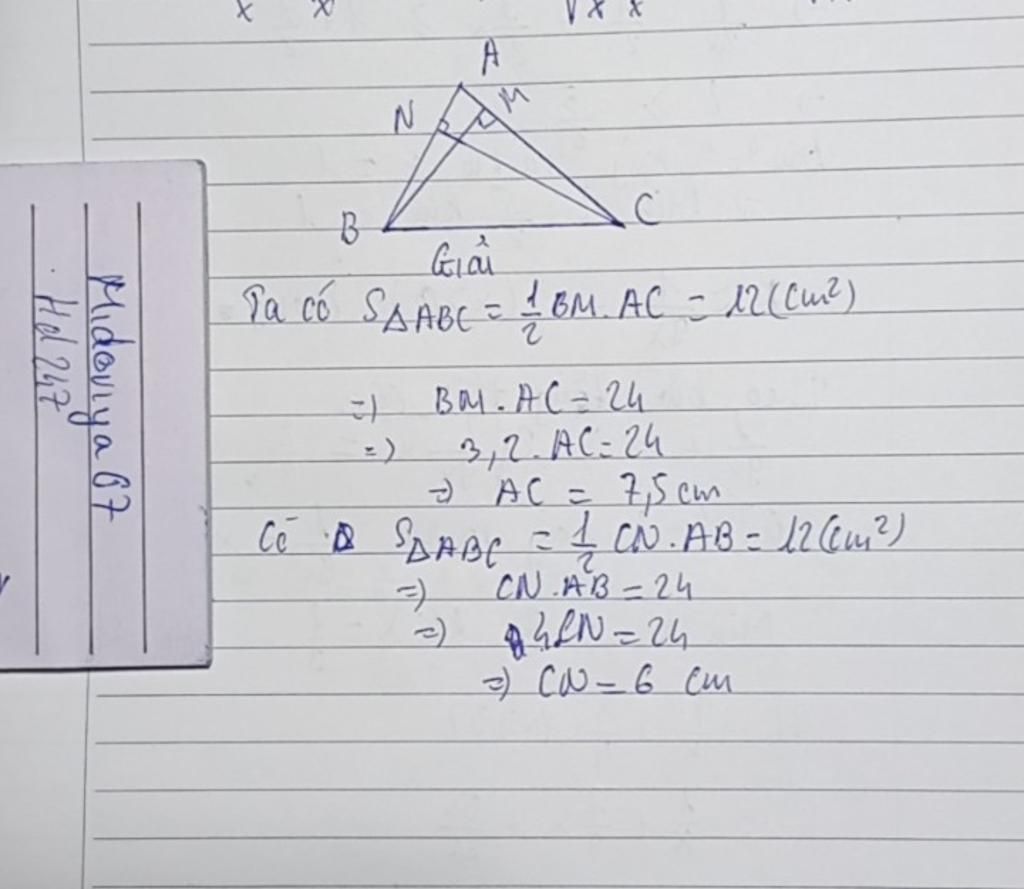 x x √x x
A
N M
B C
Giải
Ta có S△ABC = 1/2 BM. AC = 12(cm²)
=) BM. AC = 24
=) 3,2. AC = 24
=) AC = 7,5 cm
Có S△ABC = 1/2 CN. AB = 12(cm²)
=) CN. AB = 24
=) 4CN = 24
=) CN = 6 cm
Midoviya67
Hd247